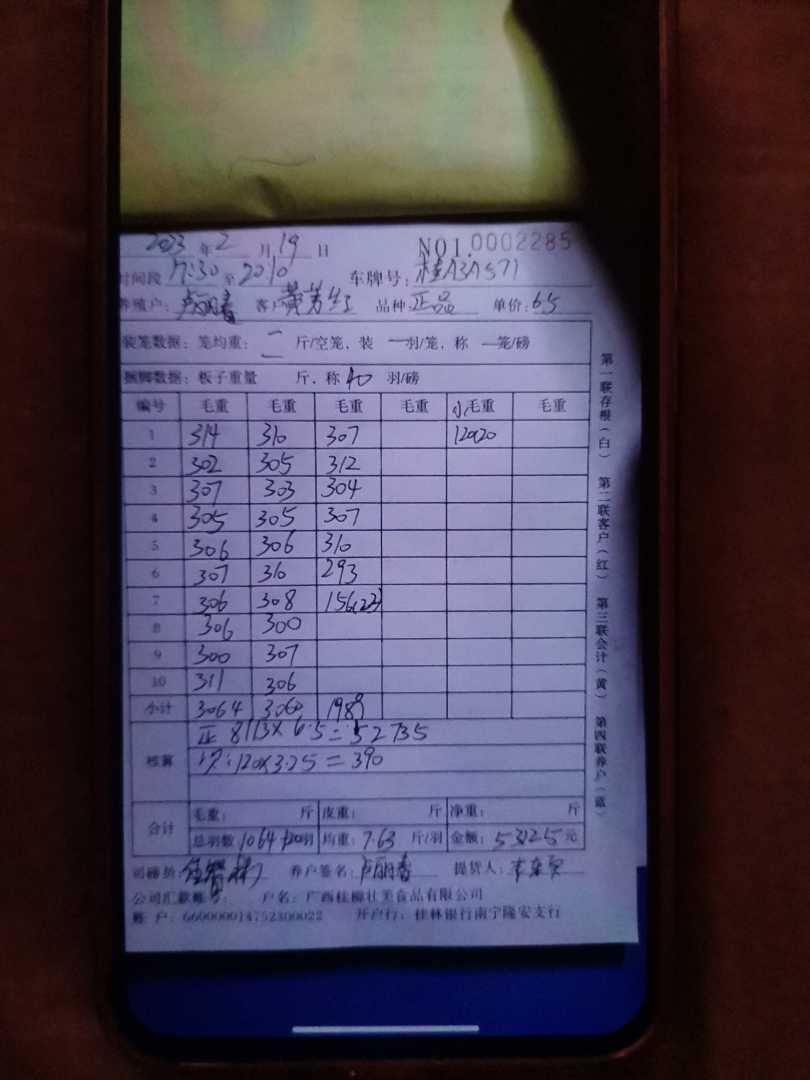 2023年2月19日 NO1.0002285
时间段17:30至2010 车牌号:桂A3A571
养殖户:卢丽春 客户黄芳生 品种:正品 单价:6.5
装笼数据:笼均重: 二 斤/空笼,装 一羽/笼,称 一笼/磅
捆脚数据:板子重量 斤,称40 羽/磅
编号 毛重 毛重 毛重 毛重 小毛重 毛重
1 314 310 307 120(20
2 302 305 312
3 307 303 304
4 305 305 307
5 306 306 310
6 307 310 293
7 306 308 156(23)
8 306 300
9 300 307
10 311 306
小计 3064 3060 1989
核算 正 8113×6.5=52735
120×3.25=390
合计 毛重: 斤 皮重: 斤 净重: 斤
总羽数1064+20羽 均重:7.63 斤/羽 金额:53125元
司磅员: 养户签名:卢丽春 提货人:
公司汇款账号: 户名:广西桂柳壮美食品有限公司
账 户:660000014752300022 开户行:桂林银行南宁隆安支行
第一联存根(白) 第二联客户(红) 第三联会计(黄) 第四联养户(蓝)